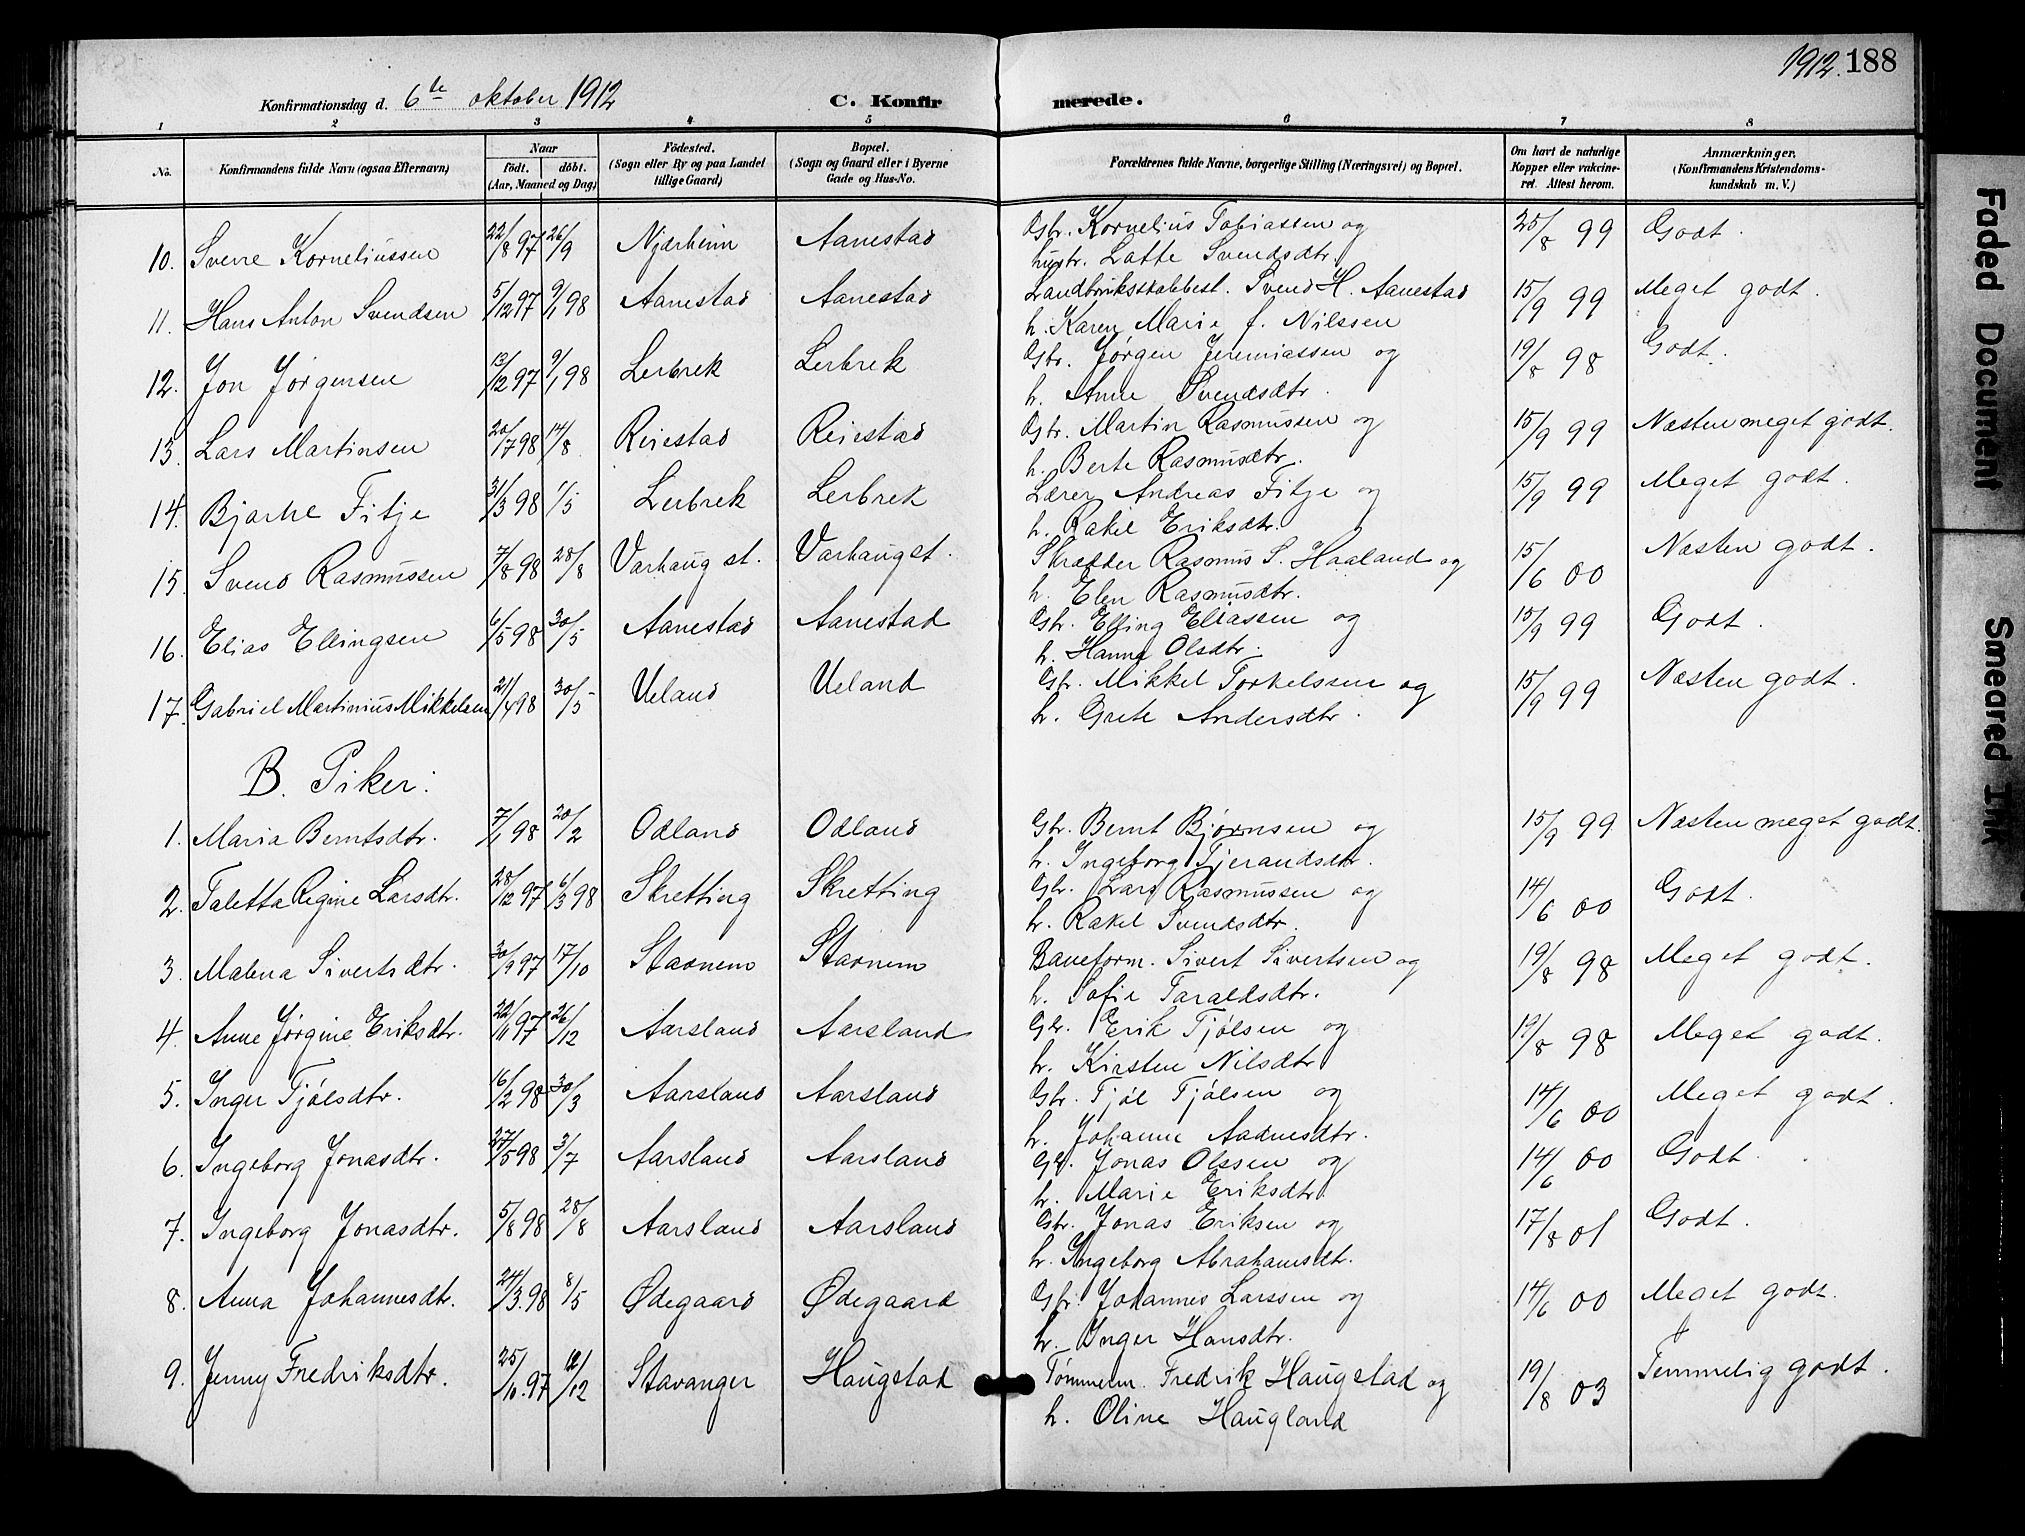 1912. 188
Konfirmationsdag d. 6te oktober 1912 C. Konfirmerede.
1 2 3 4 5 6 7 8
No. Konfirmandens fulde Navn (ogsaa Efternavn) Naar født. døbt. (Aar, Maaned og Dag) Fødested. (Sogn eller By og paa Landet tillige Gaard) Bopæl. (Sogn og Gaard eller i Byerne Gade og Hus-No. Forældrenes fulde Navne, borgerlige Stilling (Næringsvei) og Bopæl. Om havt de naturlige Kopper eller vakcineret. Attest herom. Anmærkninger. (Konfirmandens Kristendomskundskab m. V.)
10. Sverre Korneliussen 22/8 97 26/9 Njærheim Aanestad Gbr. Kornelius Tobiassen og 25/8 99 Godt.
hustr. Latte Svendsdtr.
11. Hans Anton Svendsen 5/12 97 9/1 98 Aanestad Aanestad Svend H. Aanestad 15/9 99 Meget godt.
h. Karen Marie f. Nilssen
12. Jon Jørgensen 13/12 97 9/1 98 Lerbrek Lerbrek Gbr. Jørgen Jeremiassen og 19/8 98 Godt.
h. Anne Svendsdtr.
13. Lars Martinsen 20/7 98 14/8 Reiestad Reiestad Gbr. Martin Rasmussen og 15/9 99 Næsten meget godt.
h. Berte Rasmusdtr.
14. Bjarne Fitje 31/3 98 1/5 Lerbrek Lerbrek Lærer Andreas Fitje og 15/9 99 Meget godt.
h. Rakel Eriksdtr.
15. Svend Rasmussen 7/8 98 28/8 Varhaug st. Varhaug st. Skrædder Rasmus S. Haaland og 15/6 00 Næsten godt.
h. Elen Rasmusdtr.
16. Elias Ellingsen 6/5 98 30/5 Aanestad Aanestad Gbr. Elling Eliassen og 15/9 99 Godt.
h. Hanna Olsdtr.
17. Gabriel Martinius Mikkelsen 21/4 98 30/5 Ueland Ueland Gbr. Mikkel Torkelssen og 15/9 99 Næsten godt.
h. Grete Andersdtr.
B. Piker:
1. Maria Berntsdtr. 7/1 98 20/2 Odland Odland Gbr. Bernt Bjørnsen og 15/9 99 Næsten meget godt.
h. Ingeborg Tjerandsdtr.
2. Taletta Regine Larsdtr. 28/12 97 6/3 98 Skretting Skretting Gbr. Lars Rasmussen og 14/6 00 Godt.
h. Rakel Svendsdtr.
3. Malena Sivertsdtr. 30/9 97 17/10 Stavnem Stavnem Baneform. Sivert Sivertsen og 19/8 98 Meget godt.
h. Sofie Taraldsdtr.
4. Anne Jørgine Eriksdtr. 22/11 97 26/12 Aarsland Aarsland Gbr. Erik Tjølsen og 19/8 98 Meget godt.
h. Kirsten Nilsdtr
5. Inger Tjølsdtr. 16/2 98 30/3 Aarsland Aarsland Gbr. Tjøl Tjølsen og 14/6 00 Meget godt.
h. Johanne Aadnesdtr.
6. Ingeborg Jonasdtr. 27/5 98 3/7 Aarsland Aarsland Gbr. Jonas Olssen og 14/6 00 Godt.
h. Marie Eriksdtr.
7. Ingeborg Jonasdtr. 5/8 98 28/8 Aarsland Aarsland Gbr. Jonas Eriksen og 17/8 01 Godt.
h. Ingeborg Abrahamsdtr.
8. Anna Johannesdtr. 24/3 98 8/5 Ødegaard Ødegaard Gbr. Johannes Larssen og 14/6 00 Meget godt.
h. Inger Hansdtr.
9. Jenny Fredriksdtr. 25/10 97 12/12 Stavanger Haugstad Tømmerm. Fredrik Haugstad og 19/8 03 Temmelig godt.
h. Oline Haugland
Faded Document
Smeared Ink